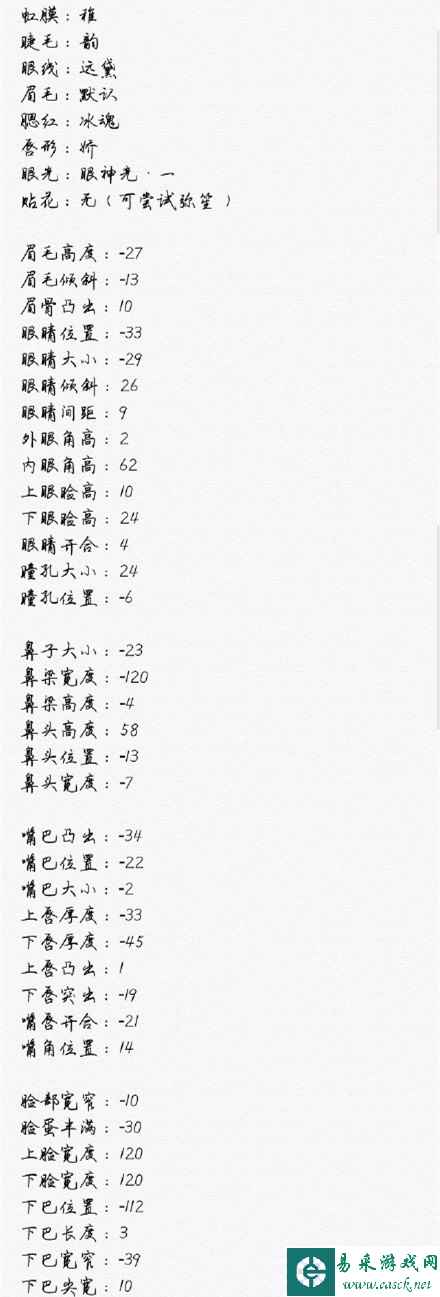 虹膜：稚
睫毛：韵
眼线：远黛
眉毛：默认
腮红：冰魂
唇形：娇
眼光：眼神光·一
贴花：无（可尝试弥笙）
眉毛高度：-27
眉毛倾斜：-13
眉骨凸出：10
眼睛位置：-33
眼睛大小：-29
眼睛倾斜：26
眼睛间距：9
外眼角高：2
内眼角高：62
上眼睑高：10
下眼睑高：24
眼睛开合：4
瞳孔大小：24
瞳孔位置：-6
鼻子大小：-23
鼻梁宽度：-120
鼻梁高度：-4
鼻头高度：58
鼻头位置：-13
鼻头宽度：-7
嘴巴凸出：-34
嘴巴位置：-22
嘴巴大小：-2
上唇厚度：-33
下唇厚度：-45
上唇凸出：1
下唇突出：-19
嘴唇开合：-21
嘴角位置：14
脸部宽窄：-10
脸蛋丰满：-30
上脸宽度：120
下脸宽度：120
下巴位置：-112
下巴长度：3
下巴宽窄：-39
下巴尖宽：10
易采游戏网
www.easck.net